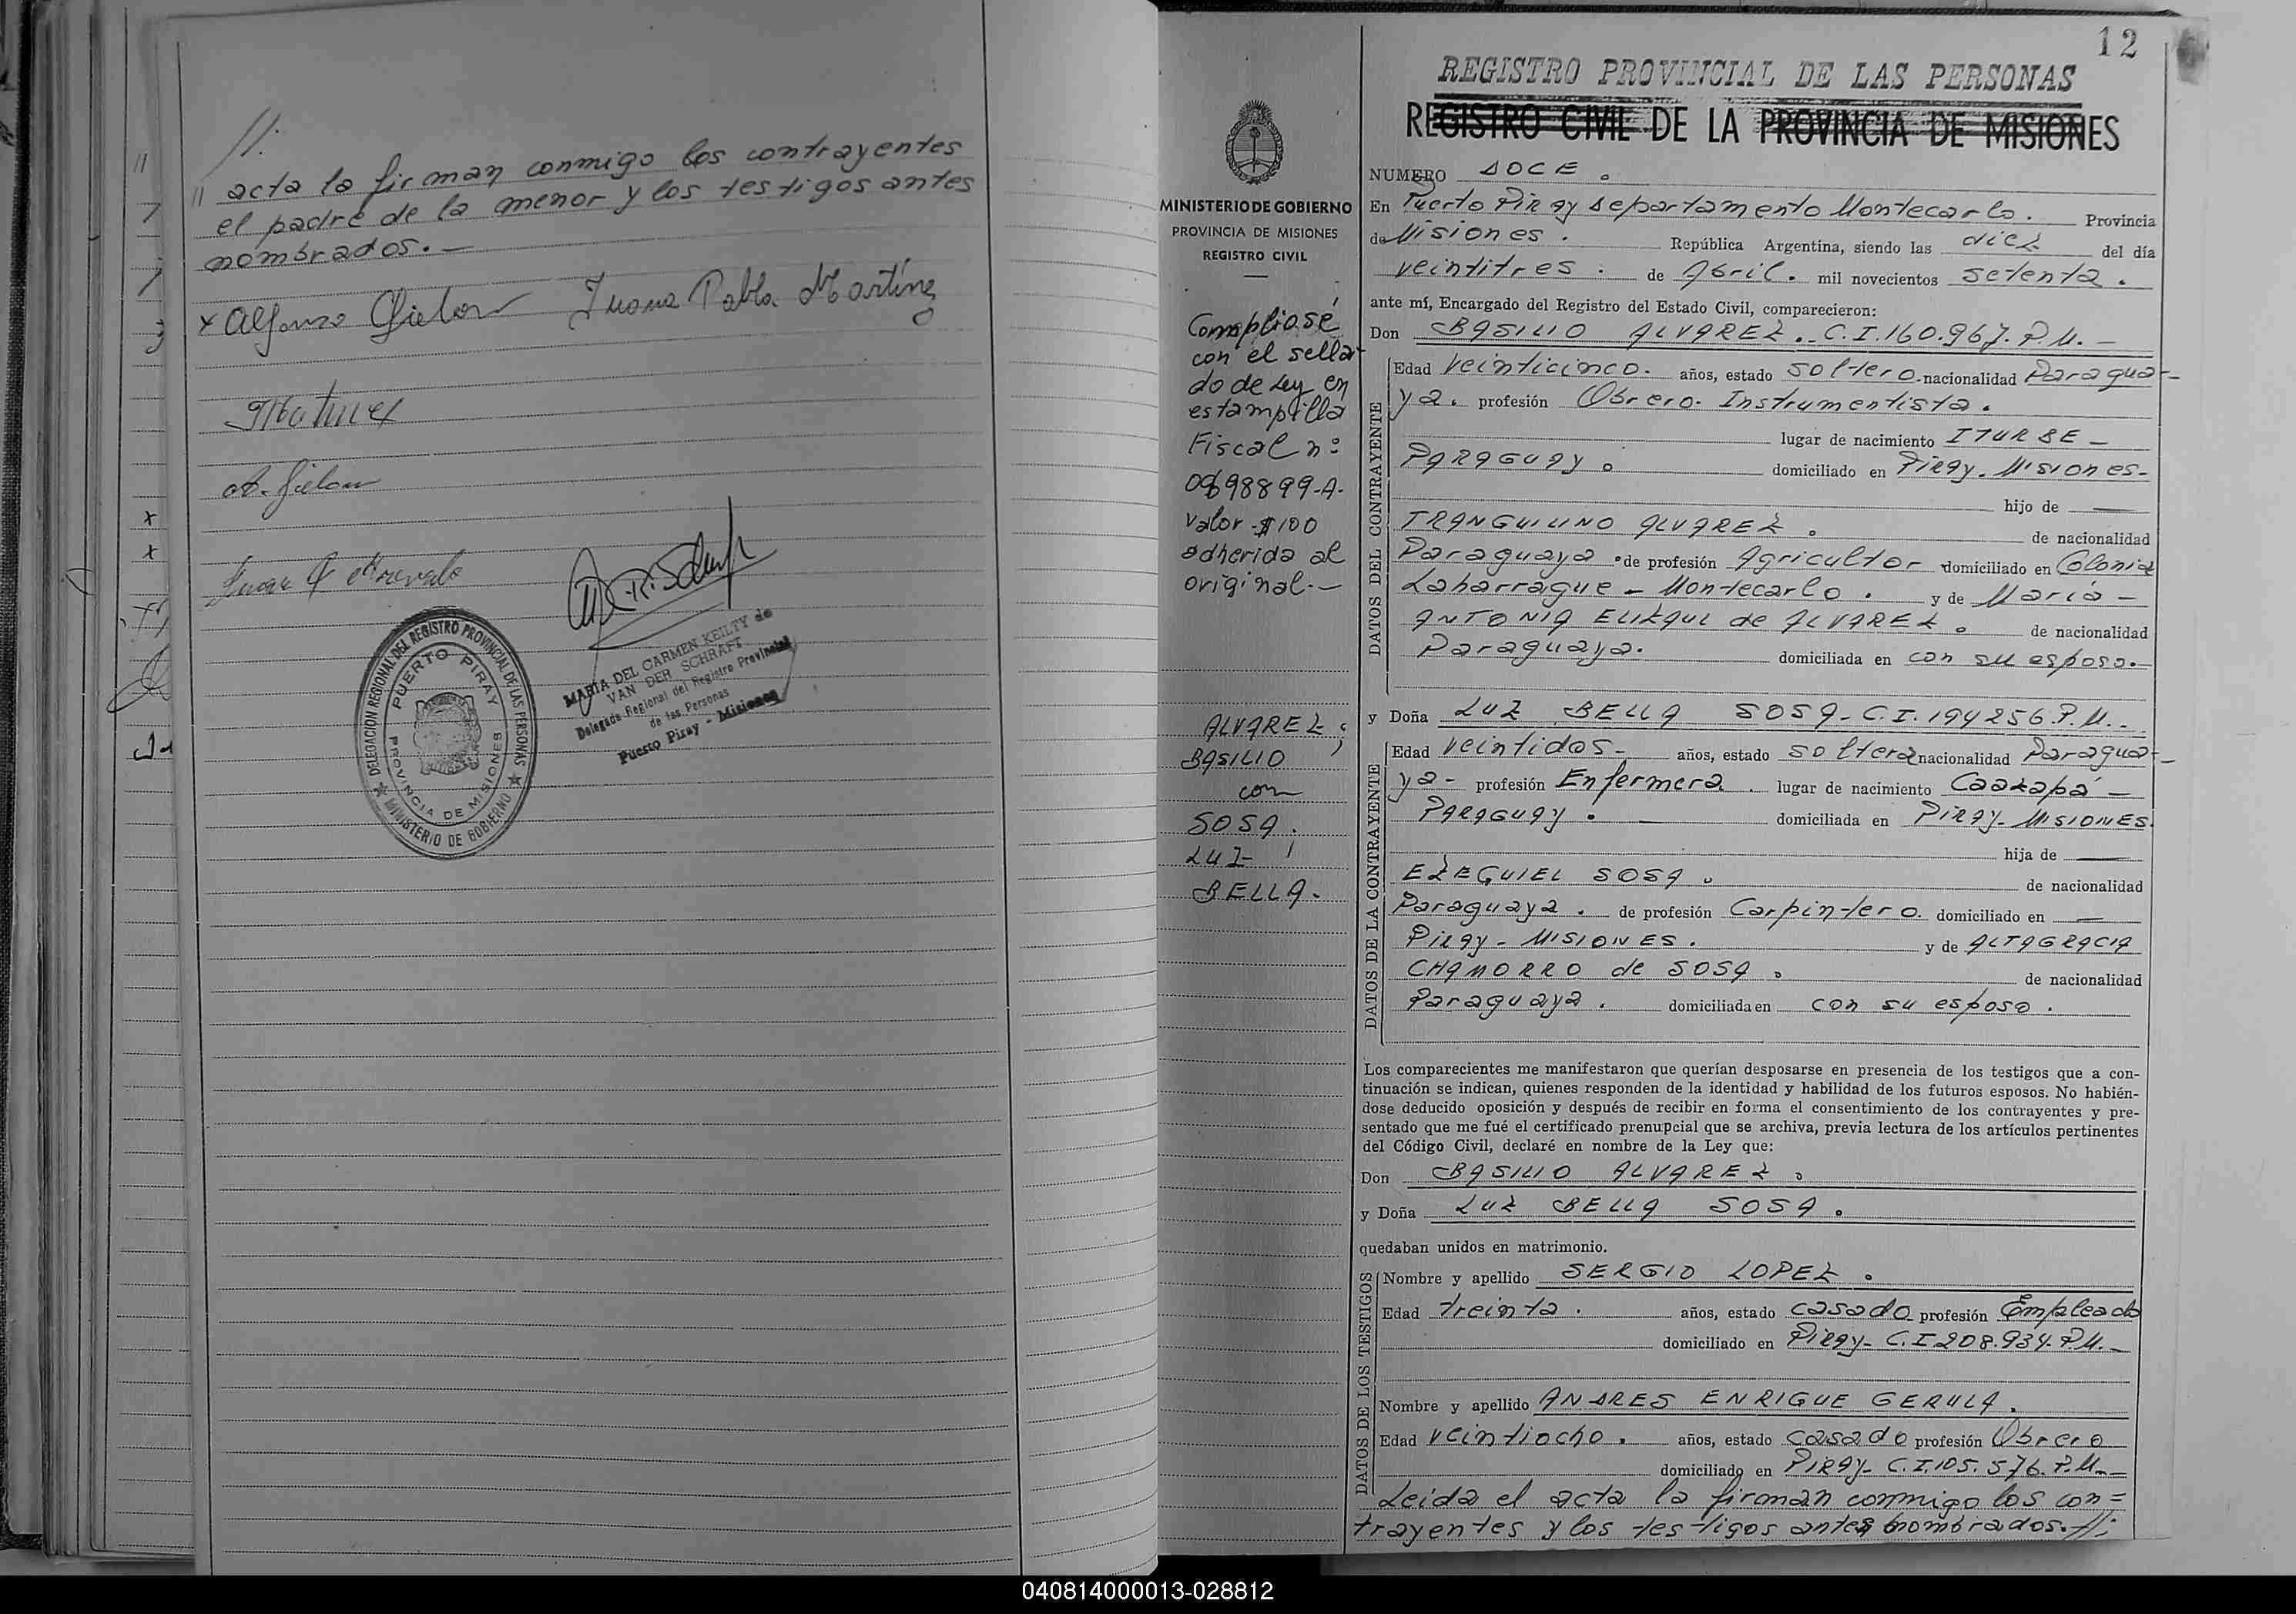 //.
// acta la firman conmigo los contrayentes
el padre de la menor y los testigos antes
nombrados.-
x Alfonso Gielow Juana Pabla Martinez
A. Gielow
MARIA DEL CARMEN KEILTY de
VAN DER SCHRAFT
Delegada Regional del Registro Provincial
de las Personas
Puerto Piray - Misiones
DELEGACION REGIONAL DEL REGISTRO PROVINCIAL DE LAS PERSONAS
PUERTO PIRAY
PROVINCIA DE MISIONES
MINISTERIO DE GOBIERNO
12
REGISTRO PROVINCIAL DE LAS PERSONAS
REGISTRO CIVIL DE LA PROVINCIA DE MISIONES
MINISTERIO DE GOBIERNO
PROVINCIA DE MISIONES
REGISTRO CIVIL
Compliose
con el sella-
do de Ley en
estampilla
Fiscal n:
0698899-A.
Valor-$100
adherida al
original.-
ALVAREZ
BASILIO
con
SOSA.
LUZ
BELLA.
NUMERO DOCE.
En Puerto Piray departamento Montecarlo. Provincia
de Misiones. República Argentina, siendo las diez del día
veintitres. de Abril. mil novecientos setenta.
ante mí, Encargado del Registro del Estado Civil, comparecieron:
Don BASILIO ALVAREZ.-C.I.160.967.P.M.-
DATOS DEL CONTRAYENTE
Edad veinticinco. años, estado soltero. nacionalidad Paragua-
ya. profesión Obrero. Instrumentista.
lugar de nacimiento ITURBE-
PARAGUAY. domiciliado en Piray. Misiones-
hijo de
TRANQUILINO ALVAREZ. de nacionalidad
Paraguaya. de profesión Agricultor domiciliado en Colonia
Laharrague - Montecarlo. y de Maria-
ANTONIA ELIZAUL de ALVAREZ. de nacionalidad
Paraguaya. domiciliada en con su esposo.-
y Doña LUZ BELLA SOSA-C.I.194256.P.M.-
DATOS DE LA CONTRAYENTE
Edad veintidos- años, estado soltera nacionalidad Paragua-
ya- profesión Enfermera. lugar de nacimiento Caazapá-
PARAGUAY. domiciliada en PIRAY-MISIONES.
hija de
EZEQUIEL SOSA. de nacionalidad
Paraguaya. de profesión Carpintero. domiciliado en
Piray-MISIONES. y de ALTAGRACIA
CHAMORRO de SOSA. de nacionalidad
Paraguaya. domiciliada en con su esposo.
Los comparecientes me manifestaron que querían desposarse en presencia de los testigos que a con-
tinuación se indican, quienes responden de la identidad y habilidad de los futuros esposos. No habién-
dose deducido oposición y después de recibir en forma el consentimiento de los contrayentes y pre-
sentado que me fué el certificado prenupcial que se archiva, previa lectura de los artículos pertinentes
del Código Civil, declaré en nombre de la Ley que:
Don BASILIO ALVAREZ.
y Doña LUZ BELLA SOSA.
quedaban unidos en matrimonio.
DATOS DE LOS TESTIGOS
Nombre y apellido SERGIO LOPEZ.
Edad treinta. años, estado casado profesión Empleado
domiciliado en Piray-C.I.208.934.P.M.-
Nombre y apellido ANDRES ENRIQUE GERULA.
Edad veintiocho. años, estado casado profesión Obrero
domiciliado en PIRAY-C.I.105.576.P.M.-
Leida el acta la firman conmigo los con=
trayentes y los testigos antes nombrados.-//:
040814000013-028812